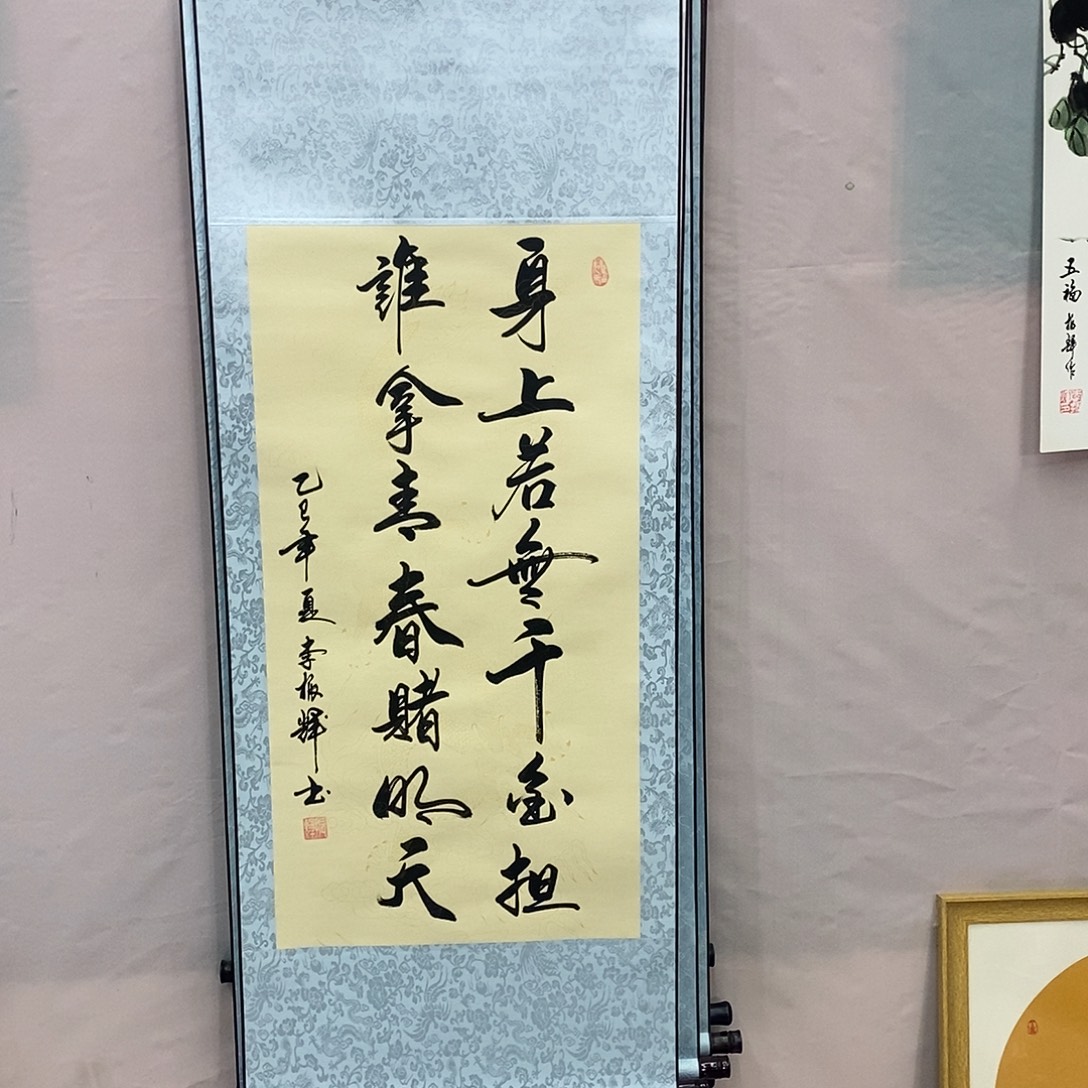 身上若無千金担
誰拿青春賭明天
乙巳年夏李振輝书
五福振輝作